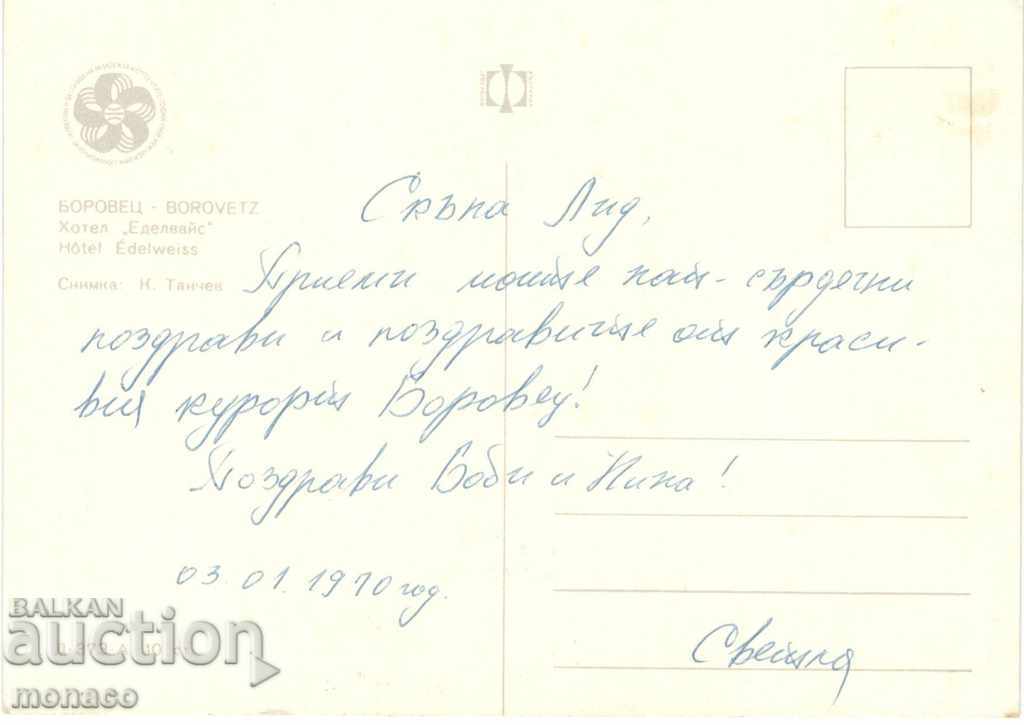 БОРОВЕЦ - BOROVETZ
Хотел „Еделвайс"
Hôtel Édelweiss
Снимка: К. Танчев
Скъпа Лид,
Приеми моите най-сърдечни
поздрави и поздравите от краси-
вия курорт Боровец!
Поздрави Боби и Нина!
03.01.1970 год.
Светла
BALKAN
auction
monaco